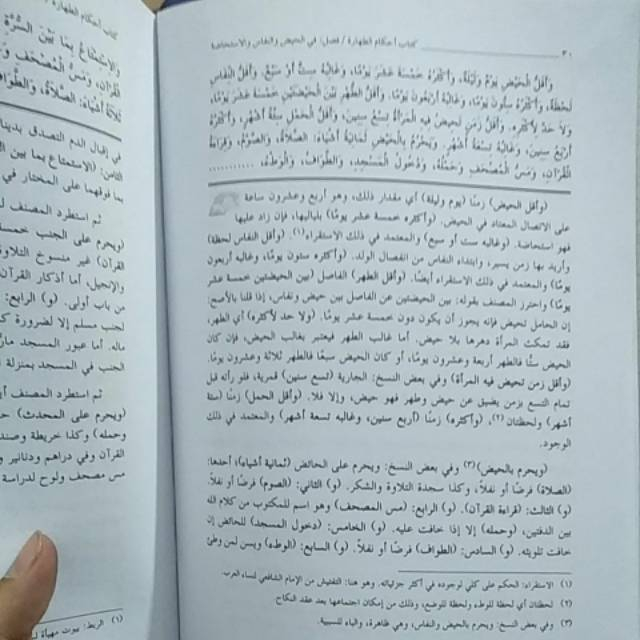 ٣٠ كتاب أحكام الطهارة / فصل: في الحيض والنفاس والاستحاضة
وَأَقَلُّ الْحَيْضِ يَوْمٌ وَلَيْلَةٌ، وَأَكْثَرُهُ خَمْسَةَ عَشَرَ يَوْمًا، وَغَالِبُهُ سِتٌّ أَوْ سَبْعٌ. وَأَقَلُّ النِّفَاسِ
لَحْظَةٌ، وَأَكْثَرُهُ سِتُّونَ يَوْمًا، وَغَالِبُهُ أَرْبَعُونَ يَوْمًا، وَأَقَلُّ الطُّهْرِ بَيْنَ الْحَيْضَتَيْنِ خَمْسَةَ عَشَرَ يَوْمًا،
وَلَا حَدَّ لِأَكْثَرِهِ. وَأَقَلُّ زَمَنٍ تَحِيضُ فِيهِ الْمَرْأَةُ تِسْعُ سِنِينَ، وَأَقَلُّ الْحَمْلِ سِتَّةُ أَشْهُرٍ، وَأَكْثَرُهُ
أَرْبَعُ سِنِينَ، وَغَالِبُهُ تِسْعَةُ أَشْهُرٍ. وَيَحْرُمُ بِالْحَيْضِ ثَمَانِيَةُ أَشْيَاءَ: الصَّلَاةُ، وَالصَّوْمُ، وَقِرَاءَةُ
الْقُرْآنِ، وَمَسُّ الْمُصْحَفِ وَحَمْلُهُ، وَدُخُولُ الْمَسْجِدِ، وَالطَّوَافُ، وَالْوَطْءُ، .........
(وأقل الحيض) زمنًا (يوم وليلة) أي مقدار ذلك، وهو أربع وعشرون ساعة
على الاتصال المعتاد في الحيض. (وأكثره خمسة عشر يومًا) بلياليها، فإن زاد عليها
فهو استحاضة. (وغالبه ست أو سبع) والمعتمد في ذلك الاستقراء(١). (وأقل النفاس لحظة)
وأريد بها زمن يسير، وابتداء النفاس من انفصال الولد. (وأكثره ستون يومًا، وغالبه أربعون
يومًا) والمعتمد في ذلك الاستقراء أيضًا. (وأقل الطهر) الفاصل (بين الحيضتين خمسة عشر
يومًا) واحترز المصنف بقوله: بين الحيضتين عن الفاصل بين حيض ونفاس، إذا قلنا بالأصح:
إن الحامل تحيض فإنه يجوز أن يكون دون خمسة عشر يومًا. (ولا حد لأكثره) أي الطهر،
فقد تمكث المرأة دهرها بلا حيض. أما غالب الطهر فيعتبر بغالب الحيض، فإن كان
الحيض ستًّا فالطهر أربعة وعشرون يومًا، أو كان الحيض سبعًا فالطهر ثلاثة وعشرون يومًا.
(وأقل زمن تحيض فيه المرأة) وفي بعض النسخ: الجارية (تسع سنين) قمرية، فلو رأته قبل
تمام التسع بزمن يضيق عن حيض وطهر فهو حيض، وإلا فلا. (وأقل الحمل) زمنًا (ستة
أشهر) ولحظتان(٢). (وأكثره) زمنًا (أربع سنين) وغالبه تسعة أشهر) والمعتمد في ذلك
الوجود.
(ويحرم بالحيض)(٣) وفي بعض النسخ: ويحرم على الحائض (ثمانية أشياء) أحدها:
(الصلاة) فرضًا أو نفلًا، وكذا سجدة التلاوة والشكر. (و) الثاني: (الصوم) فرضًا أو نفلًا.
(و) الثالث: (قراءة القرآن). (و) الرابع: (مس المصحف) وهو اسم للمكتوب من كلام الله
بين الدفتين، (وحمله) إلا إذا خافت عليه. (و) الخامس: (دخول المسجد) للحائض إن
خافت تلويثه. (و) السادس: (الطواف) فرضًا أو نفلًا. (و) السابع: (الوطء) ويسن لمن وطئ
(١) الاستقراء: الحكم على كلي لوجوده في أكثر جزئياته. وهو هنا: التفتيش من الإمام الشافعي لنساء العرب.
(٢) لحظتان أي لحظة للوطء ولحظة للوضع، وذلك من إمكان اجتماعهما بعد عقد النكاح.
(٣) وفي بعض نسخ: ويحرم بالحيض والنفاس، وهي ظاهرة، والباء للسببية.
كتاب أحكام الطهارة
وَالِاسْتِمْتَاعُ بِمَا بَيْنَ السُّرَّةِ
الْقُرْآنِ، وَمَسُّ الْمُصْحَفِ وَ
ثَلَاثَةُ أَشْيَاءَ: الصَّلَاةُ، وَالطَّوَافُ
في إقبال الدم التصدق بدينار
الثامن: (الاستمتاع بما بين ال
بما فوقهما على المختار في
ثم استطرد المصنف
(ويحرم على الجنب خمسة
القرآن) غير منسوخ التلاوة
والإنجيل، أما أذكار القرآن
من باب أولى. (و) الرابع:
لجنب مسلم إلا لضرورة ك
ماله. أما عبور المسجد مارًّا
الجنب في المسجد بمنزلة
ثم استطرد المصنف أ
(ويحرم على المحدث)
وحمله) وكذا خريطة وصند
القرآن وفي دراهم ودنانير و
مس مصحف ولوح لدراسة